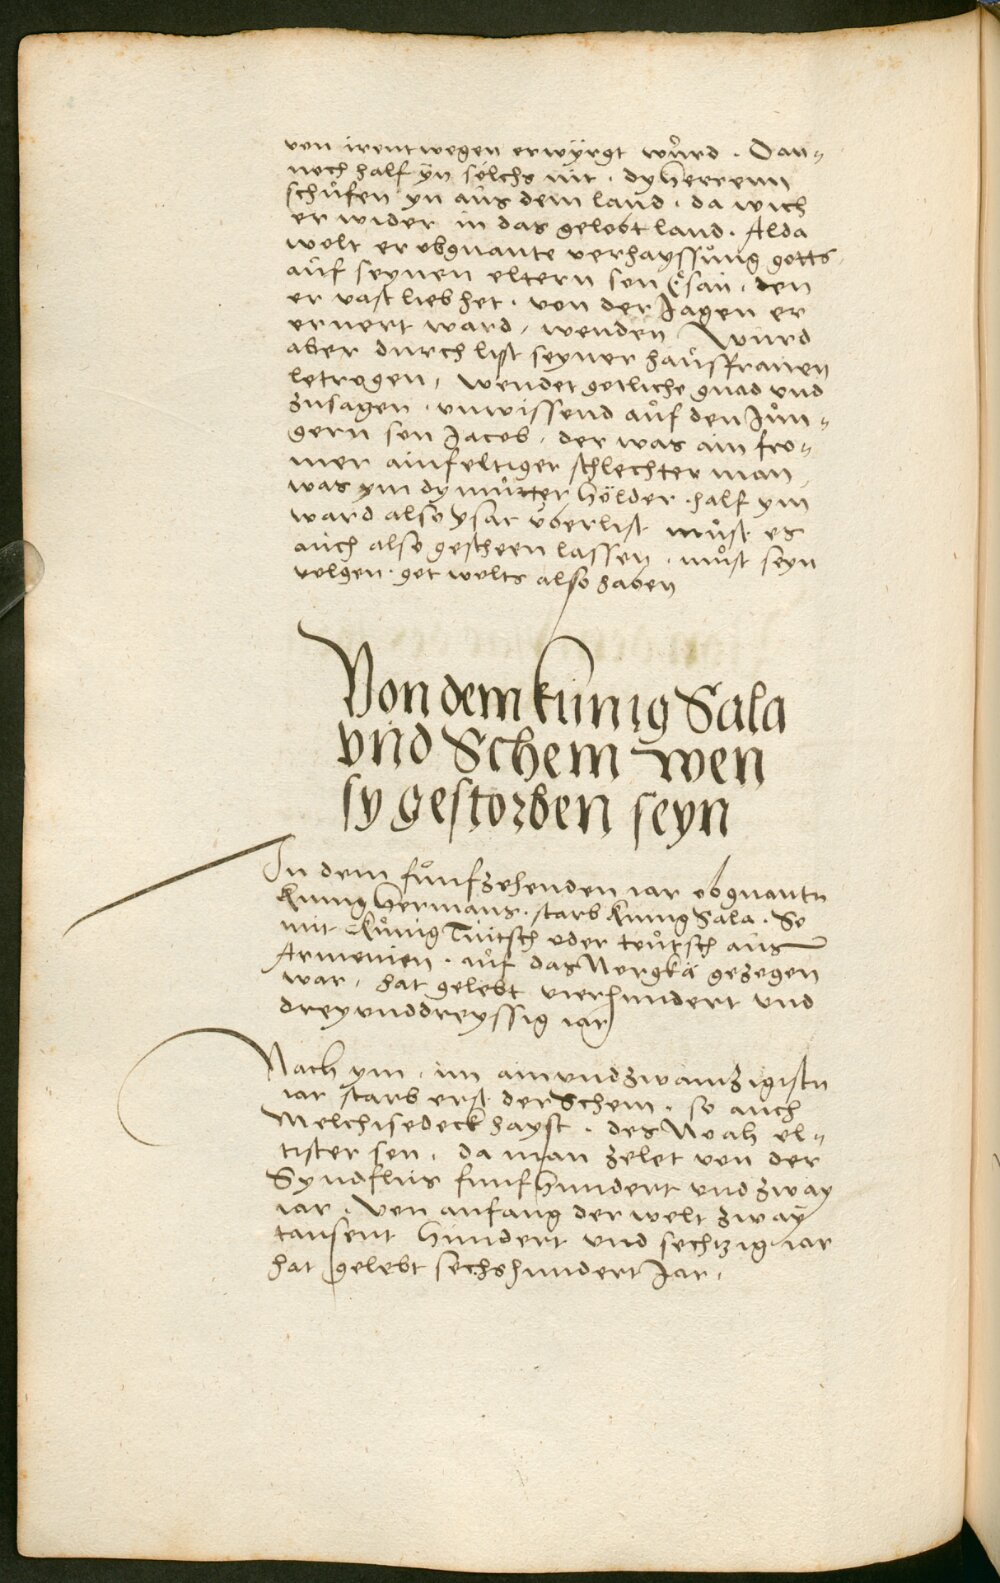 von irentwegen erwÿrgt wůrd . Dan⸗
noch half ÿn sölchs nit . dy herrenn
schůfen yn aus dem land . da wich
er wider in das gelobt land . Alda
wolt er obgnante verhayssůng gotts
aůf seynen eltern son Esau . den
er vast lieb het . von der Jagen er
ernert ward , wenden Wurd
aber durch list seyner haůsfrauen
betrogen , Wendet gotliche gnad vnd
zusagen . vnwissend aůf den Jůn⸗
gern son Jacob . der was ain fro⸗
mer ainfeltiger schlechter man ,
was ym dy můtter hölder . half ym
ward also Ysac vberlist můst es
auch also gescheen lassen . můst seyn
volgen . got wolts also haben
Von dem kunig Sala
vnd Schem wen
sy gestorben seyn
In dem fůnfzehenden iar obgnantn
kunig hermans . starb kunig Sala . So
mit kůnig Tuitsch oder teůtsch aus
Armenien . aůf das Norgkä gezogen
war , hat gelebt vierhundert vnd
dreyvnddreyssig iar
Nach ym . im ainvndzwainzigistn
iar starb erst der Schem . so auch
Melchisedeck hayst . des Noah el⸗
tister son . da man zelet von der
Syndflus funfhundert vnd zway
iar . Von anfang der welt zwaÿ
tausent hundert vnd sechzig iar
hat gelebt sechshundert Jar .